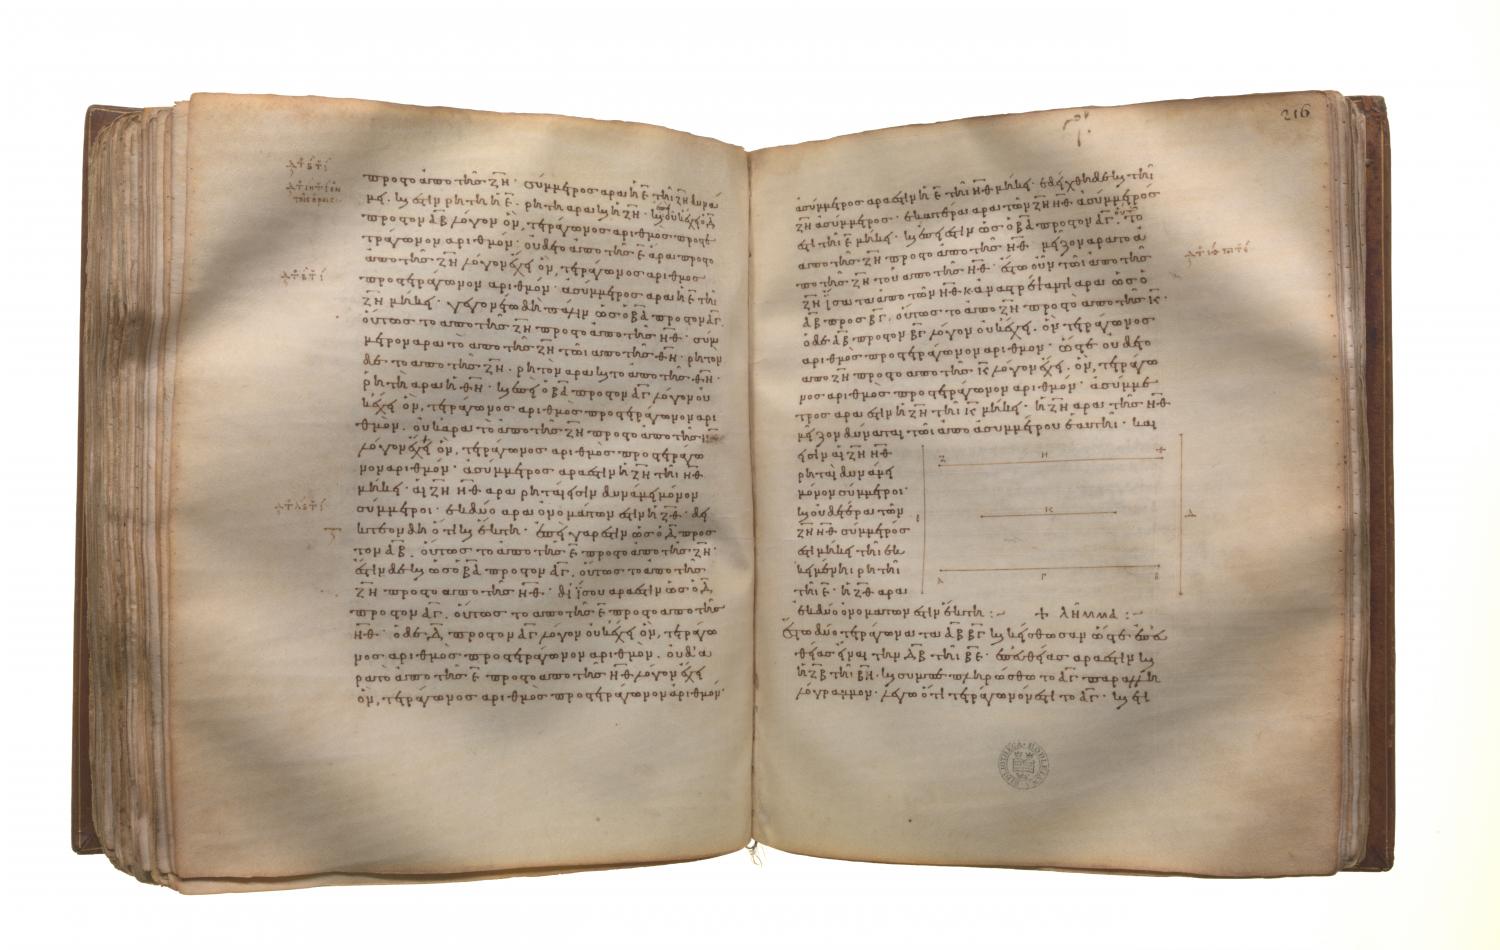 πρὸς τὸ ἀπὸ τῆς ΖΗ· σύμμετρος ἄρα ἡ Ε τῆι ΖΗ δυνά
μει. καὶ ἐστιν ῥητὴ ἡ Ε· ῥητὴ ἄρα καὶ ἡ ΖΗ· καὶ ἐπεὶ οὐκ ἔχει ὁ Δ
πρὸς τὸν ΑΒ λόγον ὃν, τετράγωνος ἀριθμὸς πρὸς τε
τράγωνον ἀριθμόν· οὐδὲ τὸ ἀπὸ τῆς Ε ἄρα πρὸς τὸ
ἀπὸ τῆς ΖΗ λόγον ἔχει ὃν, τετράγωνος ἀριθμὸς
πρὸς τετράγωνον ἀριθμόν· ἀσύμμετρος ἄρα ἡ Ε τῆι
ΖΗ μήκει· γεγονέτω δὴ πάλιν ὡς ὁ ΒΑ πρὸς τὸν ΑΓ.
οὕτως τὸ ἀπὸ τῆς ΖΗ πρὸς τὸ ἀπὸ τῆς ΗΘ· σύμ
μετρον ἄρα τὸ ἀπὸ τῆς ΖΗ τῶι ἀπὸ τῆς ΘΗ· ῥητὸν
δὲ τὸ ἀπὸ τῆς ΖΗ· ῥητὸν ἄρα καὶ τὸ ἀπὸ τῆς ΘΗ·
ῥητὴ ἄρα ἡ ΘΗ· καὶ ἐπεὶ ὁ ΒΑ πρὸς τὸν ΑΓ λόγον οὐ
κ ἔχει ὃν, τετράγωνος ἀριθμὸς πρὸς τετράγωνον ἀρι
θμόν. οὐκ ἄρα τὸ ἀπὸ τῆς ΖΗ πρὸς τὸ ἀπὸ τῆς
λόγον ἔχει ὃν, τετράγωνος ἀριθμὸς πρὸς τετράγω
νον ἀριθμόν· ἀσύμμετρος ἄρα ἐστὶν ἡ ΖΗ τῆι ΗΘ
μήκει· αἱ ΖΗ ΗΘ ἄρα ῥηταί εἰσιν δυνάμει μόνον
σύμμετροι· ἐκ δύο ἄρα ὀνομάτων ἐστὶν ἡ ΖΘ· δει
κτέον δὴ ὅτι καὶ ἕκτη· ἐπεὶ γάρ ἐστιν ὡς ὁ Δ πρὸς
τὸν ΑΒ. οὕτως τὸ ἀπὸ τῆς Ε πρὸς τὸ ἀπὸ τῆς ΖΗ·
ἔστιν δὲ καὶ ὡς ὁ ΒΑ πρὸς τὸν ΑΓ. οὕτως τὸ ἀπὸ τῆς
ΖΗ πρὸς τὸ ἀπὸ τῆς ΗΘ· δι ἴσου ἄρα ἐστὶν ὡς ὁ Δ
πρὸς τὸν ΑΓ. οὕτως τὸ ἀπὸ τῆς Ε πρὸς τὸ ἀπὸ τῆς
ΗΘ· ὁ δὲ Δ πρὸς τὸν ΑΓ λόγον οὐκ ἔχει ὃν, τετράγω
νος ἀριθμὸς πρὸς τετράγωνον ἀριθμόν. οὐδ' ἄ
ρα τὸ ἀπὸ τῆς Ε πρὸς τὸ ἀπὸ τῆς ΗΘ λόγον ἔχει
ὃν, τετράγωνος ἀριθμὸς πρὸς τετράγωνον ἀριθμόν·
216
ἀσύμμετρος ἄρα ἐστὶν ἡ Ε τῆι ΗΘ μήκει· ἐδείχθη δὲ καὶ τῆι
ΖΗ ἀσύμμετρος· ἑκατέρα ἄρα τῶν ΖΗ ΗΘ ἀσύμμετρός
ἐστι τῆι Ε μήκει· καὶ ἐπεί ἐστιν ὡς ὁ ΒΑ πρὸς τὸν ΑΓ. οὕτως τὸ
ἀπὸ τῆς ΖΗ πρὸς τὸ ἀπὸ τῆς ΗΘ· μεῖζον ἄρα τὸ ἀ
πὸ τῆς ΖΗ τοῦ ἀπὸ τῆς ΗΘ· ἔστω οὖν τῶι ἀπὸ τῆς
ΖΗ ἴσα τὰ ἀπὸ τῶν ΗΘ Κ· ἀναστρέψαντι ἄρα ὡς ὁ
ΑΒ πρὸς ΒΓ. οὕτως τὸ ἀπὸ ΖΗ πρὸς τὸ ἀπὸ τῆς Κ·
ὁ δὲ ΑΒ πρὸς τὸν ΒΓ λόγον οὐκ ἔχει. ὃν τετράγωνος
ἀριθμὸς πρὸς τετράγωνον ἀριθμόν· ὥστε οὐδὲ τὸ
ἀπὸ ΖΗ πρὸς τὸ ἀπὸ τῆς Κ λόγον ἔχει. ὃν, τετράγω
νος ἀριθμὸς πρὸς τετράγωνον ἀριθμόν· ἀσύμμε
τρος ἄρα ἐστὶν ἡ ΖΗ τῆι Κ μήκει· ἡ ΖΗ ἄρα τῆς ΗΘ
μεῖζον δύναται τῶι ἀπὸ ἀσυμμέτρου ἑαυτῆι· καί
εἰσιν αἱ ΖΗ ΗΘ
ῥηταὶ δυνάμει
μόνον σύμμετροι·
καὶ οὐδετέρα τῶν
ΖΗ ΗΘ σύμμετρός
ἐστι μήκει τῆι ἐκ
κειμένηι ῥητῆι
τῆι Ε· ἡ ΖΘ ἄρα
Ζ Η Θ
Κ
Ε
Δ
Α Γ Β
ἐκ δύο ὀνομάτων ἐστὶν ἕκτη :~ + ΛΗΜΜΑ :~
Ἔστω δύο τετράγωνα τὰ ΑΒ ΒΓ καὶ κείσθωσαν ὥστε ἐπ' εὐ
θείας εἶναι τὴν ΔΒ τῆι ΒΕ· ἐπ' εὐθείας ἄρα ἐστὶν καὶ
ἡ ΖΒ τῆι ΒΗ· καὶ συμπεπληρώσθω τὸ ΑΓ παραλλη
λόγραμμον· λέγω ὅτι τετράγωνόν ἐστι τὸ ΑΓ· καὶ ἔτι
BIBLIOTHECA BODLEIANA